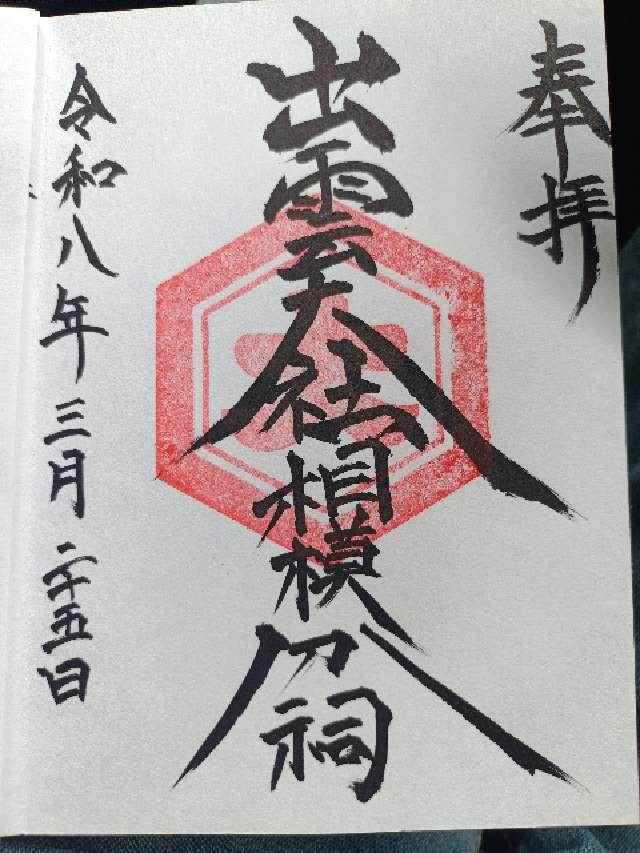 奉拝
出雲大社相模分祠
令和八年三月二十五日